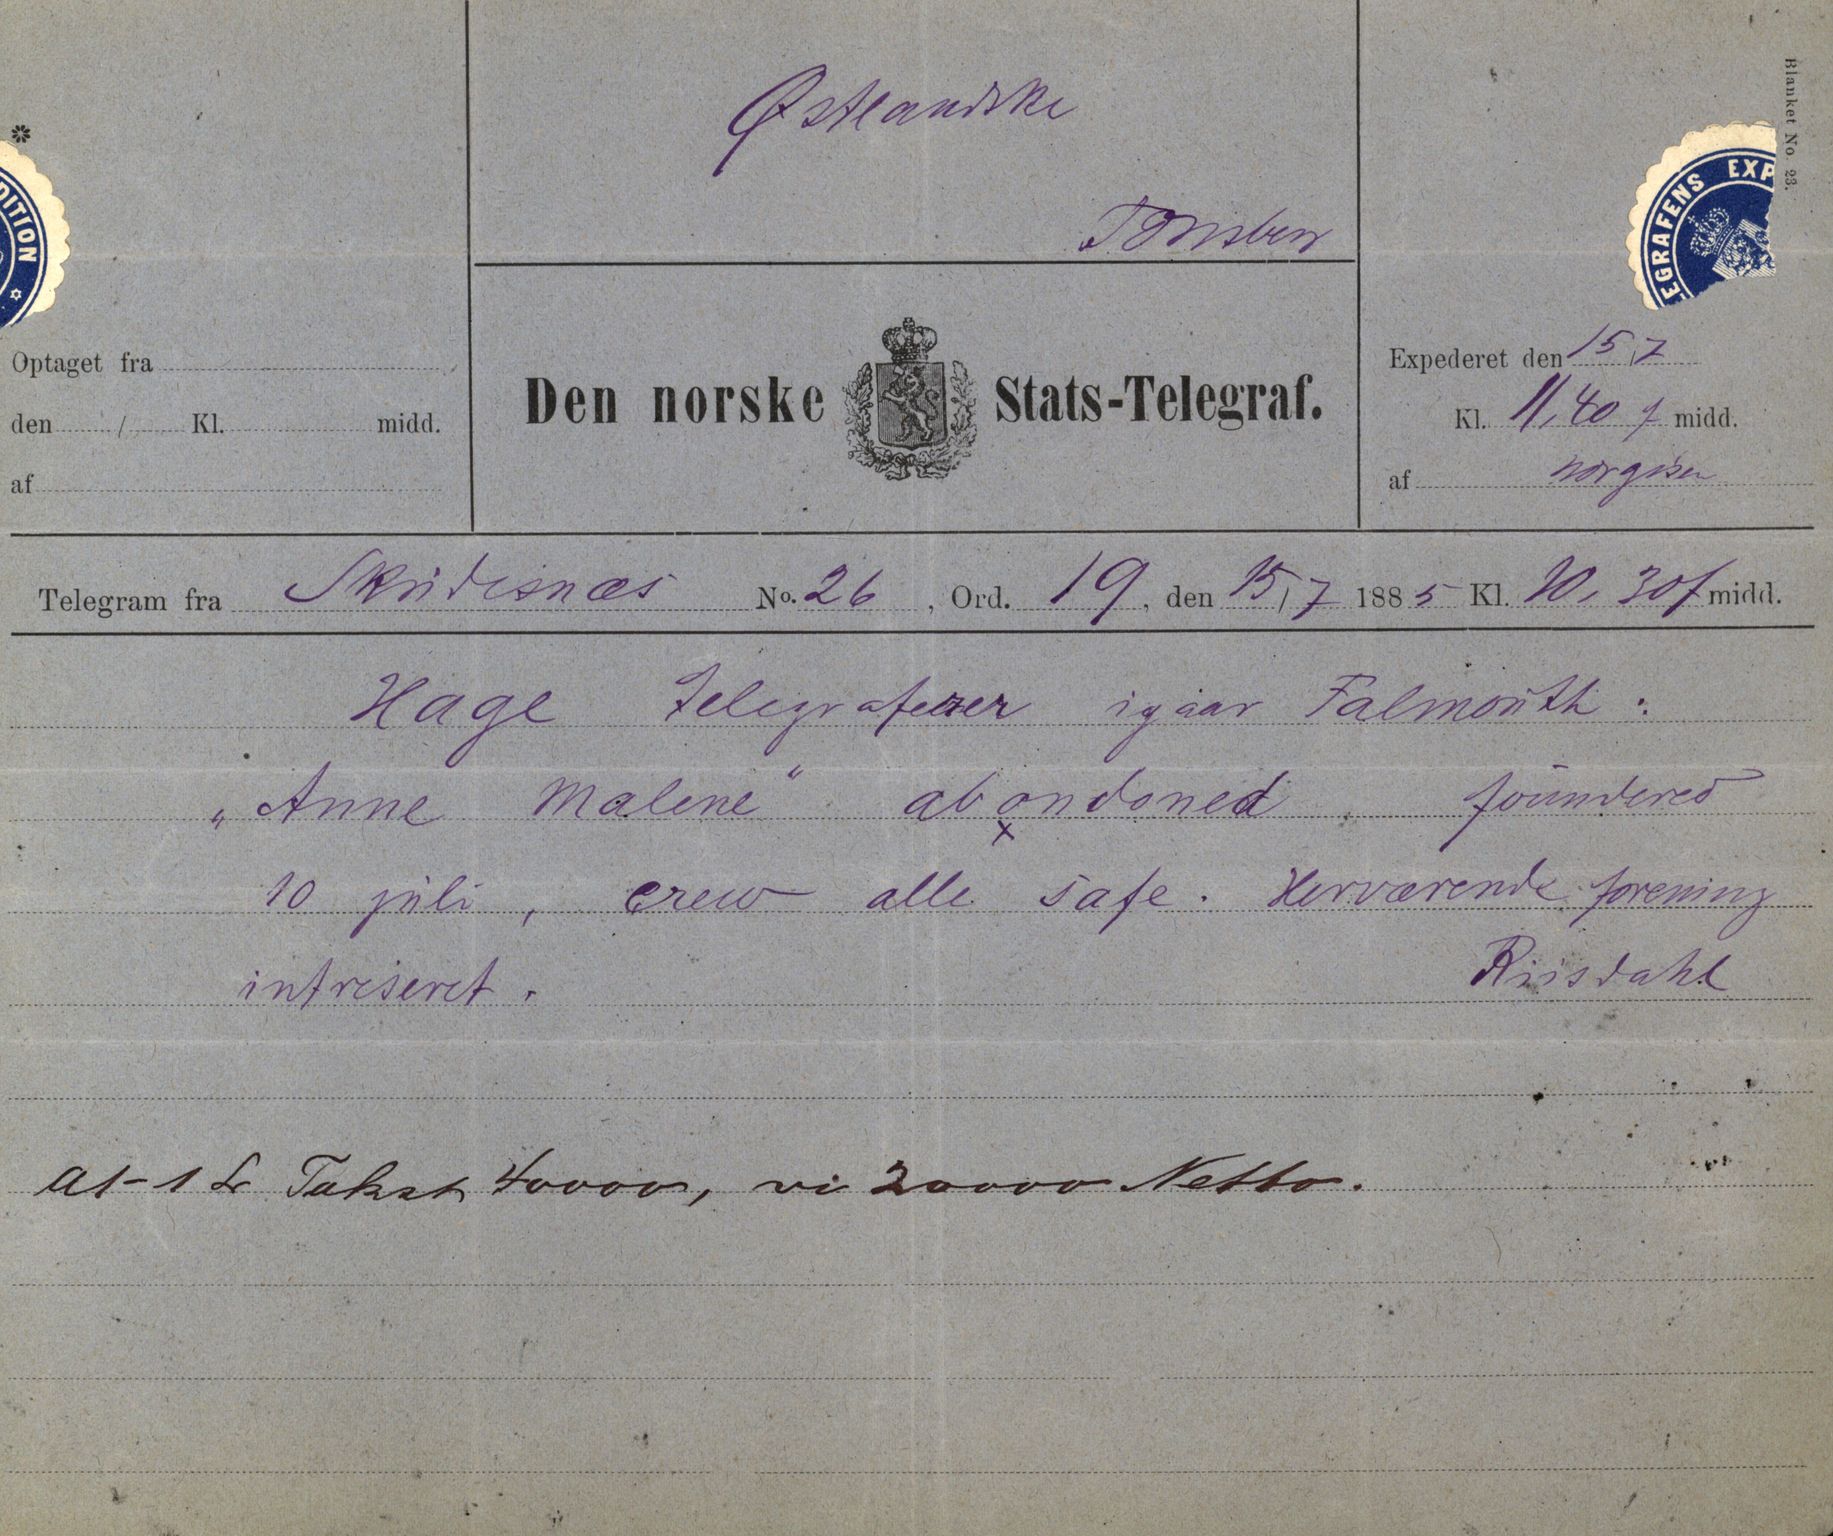 Østlandske
Tønsberg
Blanket No. 23.
DITION
EGRAFENS EXP
Optaget fra
den / Kl. midd.
af
Den norske Stats-Telegraf.
Expederet den 15/7
Kl. 11,40 f midd.
af
Telegram fra Skudesnæs No. 26, Ord. 19, den 15/7 1885 Kl. 10,30 f midd.
Hage telegraferer igaar Falmouth:
„Anne Malene“ abondoned, foundered
10 juli, crew alle safe. Herværende forening
intriseret.
Riisdahl
A1-1 Takst 40000, vi 20000 Netto.